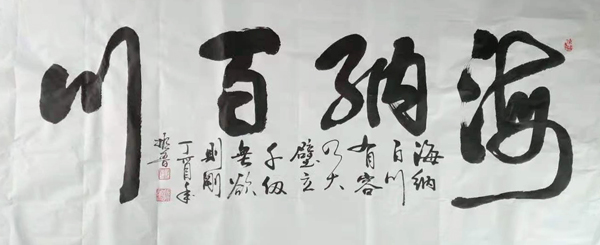 海纳百川
海纳
百川
有容
乃大
壁立
千仞
无欲
则刚
丁酉年
振鲁